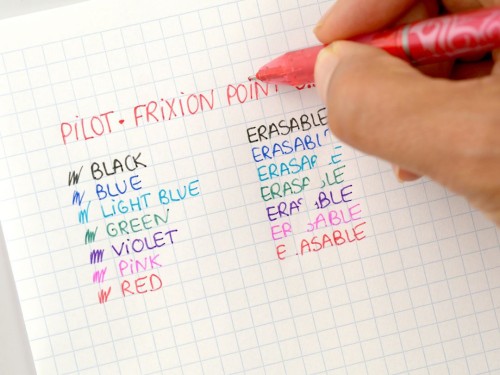 PILOT • FRIXION POINT
BLACK
BLUE
LIGHT BLUE
GREEN
VIOLET
PINK
RED
ERASABLE
ERASABL
ERASABLE
ERASABLE
ERASABLE
ERASABLE
ERASABLE